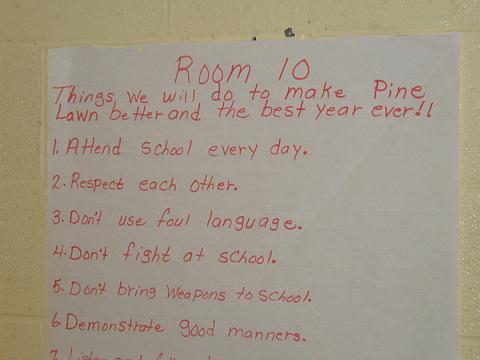 Room 10
Things we will do to make Pine
Lawn better and the best year ever!!
1. Attend school every day.
2. Respect each other.
3. Don't use foul language.
4. Don't fight at school.
5. Don't bring weapons to school.
6. Demonstrate good manners.
7. Listen and